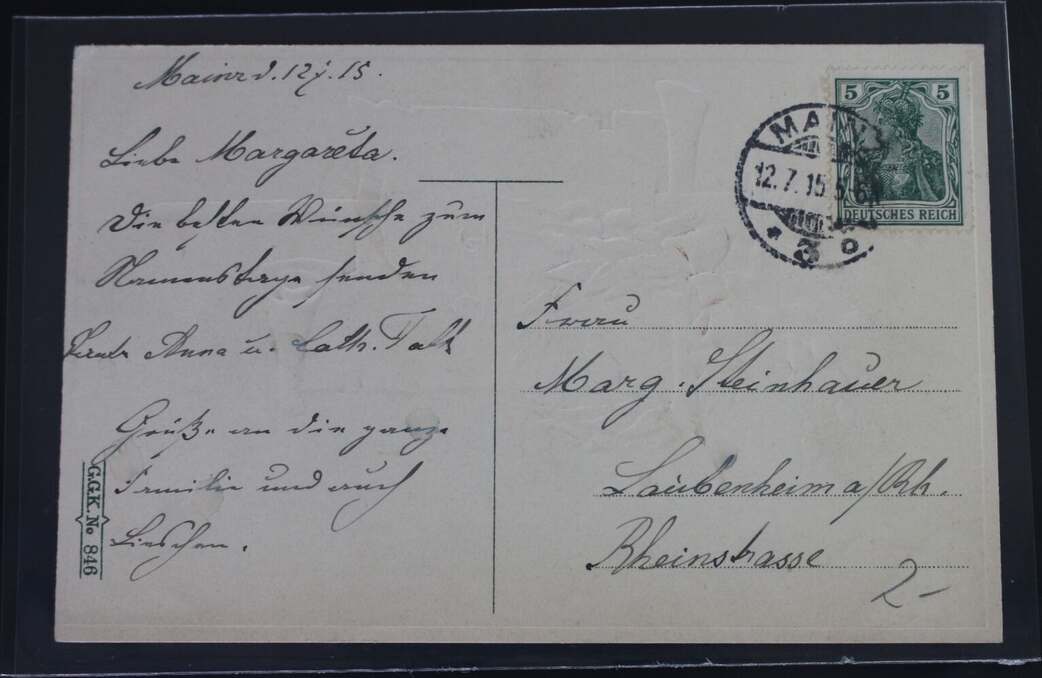 Mainz d. 12.7.15.
Liebe Margareta.
Die besten Wünsche zum
Namenstage senden
Tante Anna u. Cath. Falk
Grüße an die ganze
Familie und auch
Lieschen.
G.G.K. No 846
5 5
DEUTSCHES REICH
MAINZ
12.7.15. 5-6
* 3 o.
Frau
Marg. Steinhauer
Laubenheim a/Rh.
Rheinstrasse
2-